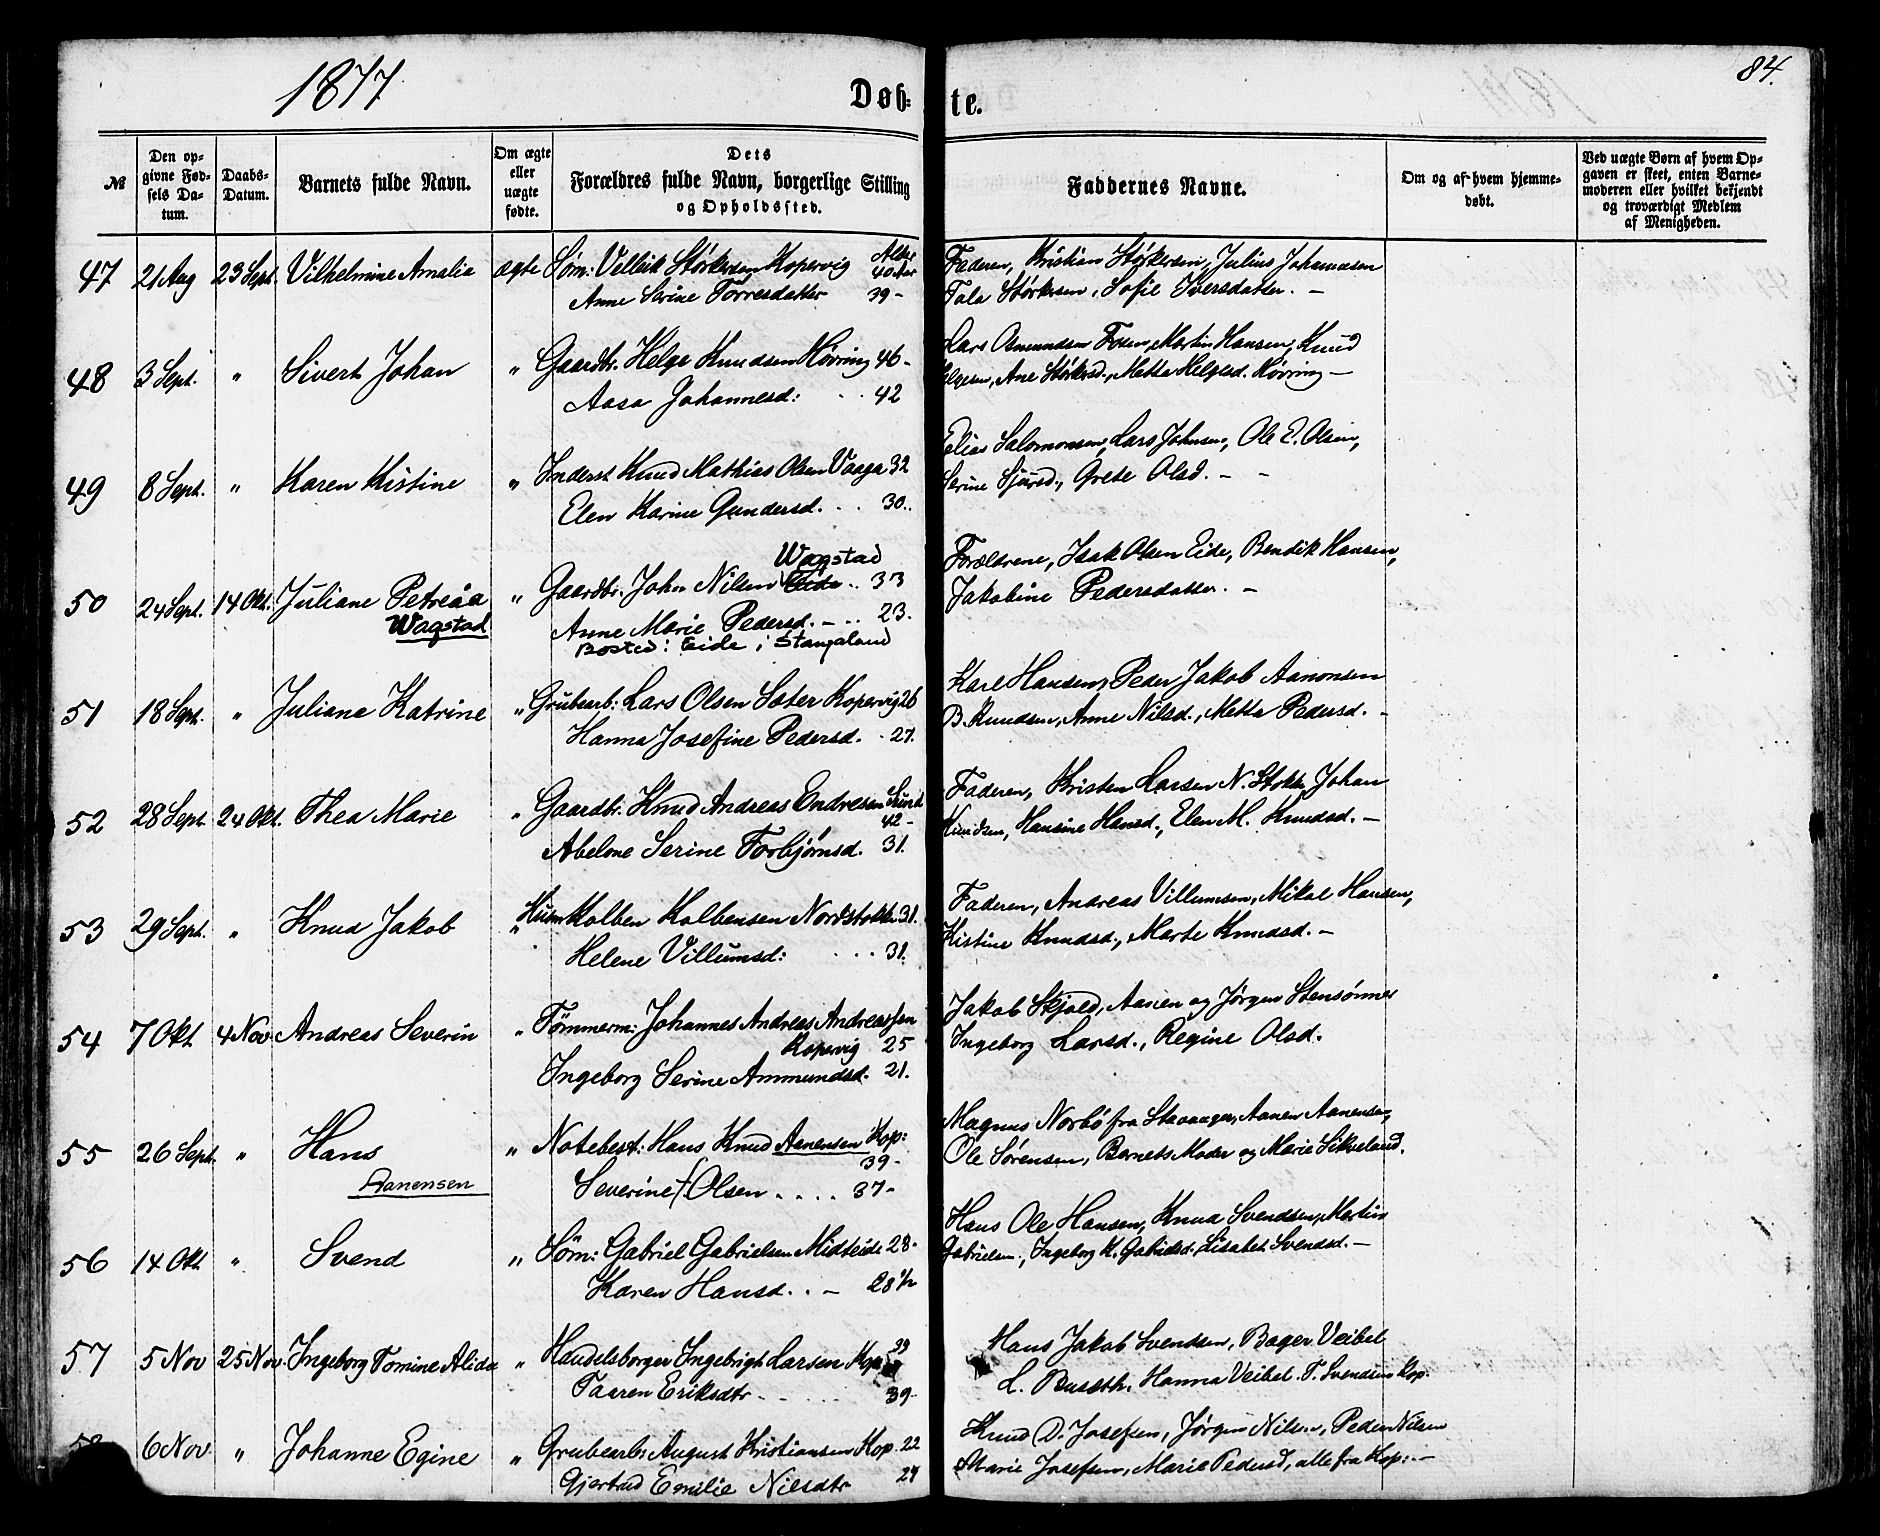 1877
Døb-
te.
84.
№
Den op-
givne Fød-
sels Da-
tum.
Daabs-
Datum.
Barnets fulde Navn.
Om ægte
eller
uægte
fødte.
Dets
Forældres fulde Navn, borgerlige Stilling
og Opholdssted.
Faddernes Navne.
Om og af hvem hjemme-
døbt.
Ved uægte Børn af hvem Op-
gaven er skeet, enten Barne-
moderen eller hvilket bekjendt
og troværdigt Medlem
af Menigheden.
47 21 Aug 23 Sept. Vilhelmine Amalia ægte Søm: Velleik Størkersen Kopervig Alder 40 Aar
Anne Serine Torresdatter 39 -
Faderen, Kristian Størkersen, Julius Johannesen
Tala Størkersen, Sofie Iversdatter. -
48 3 Sept. " Sivert Johan " Gaardbr. Helge Knudsen Høvring 46 -
Aasa Johannesd: . . 42
Lars Osmundsen Fosen, Martin Hansen, Knud
Helgesen, Ane Størksd., Metta Helgesd. Høvring -
49 8 Sept. " Karen Kistine " Inderst Knud Mathias Olsen Vaaga 32
Elen Karine Gundersd. . . 30.
Elias Salomonsen, Lars Johnsen, Ole E. Olsen,
Serine Sjursd., Grete Olsd. - -
50 24 Sept. 14 Okt. Juliane Petreåa " Gaardbr. John Nilsen Eide . . 33
Wagstad
Wagstad
Anne Marie Pedersd. - . . 23.
Bosted: Eide i Stangaland
Forældrene, Isak Olsen Eide, Bendik Hansen,
Jakobine Pedersdatter. -
51 18 Sept. " Juliane Katrine " Grubearb: Lars Olsen Sæter Kopervig 26
Hanna Josefine Pedersd. . 27.
Karl Hansen, Peder Jakob Aanonsen
B. Knudsen, Anne Nilsd., Metta Pedersd. -
52 28 Sept. 24 Okt. Thea Marie " Gaardbr. Knud Andreas Endresen Sund
42 -
Abelone Serine Torbjørnsd. 31.
Faderen, Kristen Larsen N. Stokke, Johan
Knudsen, Hansine Hansd., Elen M. Knudsd. -
53 29 Sept. " Knud Jakob " Husm Kolben Kolbensen Nordstokke 31.
Helene Villumsd: . . . 31.
Faderen, Andreas Villumsen, Mikal Hansen,
Kistine Knudsd., Marte Knudsd. -
54 7 Okt 4 Nov. Andreas Severin " Tømmerm: Johannes Andreas Andreassen
Kopervig 25
Ingeborg Serine Ammundsd. 21.
Jakob Skjold, Aanen og Jørgen Stensønnes
Ingeborg Larsd., Regine Olsd.
55 26 Sept. " Hans " Notebest: Hans Knud Aanensen Kop:
39 -
Aanensen
Severine f. Olsen . . . . 37 -
Magnus Norbö fra Stavanger, Aanen Aanensen,
Ole Sørensen, Barnets Moder og Marie Sikveland.
56 14 Okt " Svend " Søm: Gabriel Gabrielsen Midteide 28 -
Karen Hansd. . - 28 ½
Hans Ole Hansen, Knud Svendsen, Martin
Gabrielsen, Ingeborg K. Gabrielsd. Lisabet Svendsd. -
57 5 Nov 25 Nov. Ingeborg Tomine Alida " Handelsborger Ingebrigt Larsen Kop: 39
Taaren Eriksdtr - . . . . 39 -
Hans Jakob Svendsen, Bager Veibel
L. Buseth, Hanna Veibel. T. Svendsen Kop.
58 6 Nov. " Johanne Egine " Grubearb: August Kristiansen Kop. 22
Gjertrud Emilie Nilsdtr 24
Knud D. Josefsen, Jørgen Nilsen, Peder Nilsen
Marie Josefsen, Marie Pedersd, alle fra Kop: -